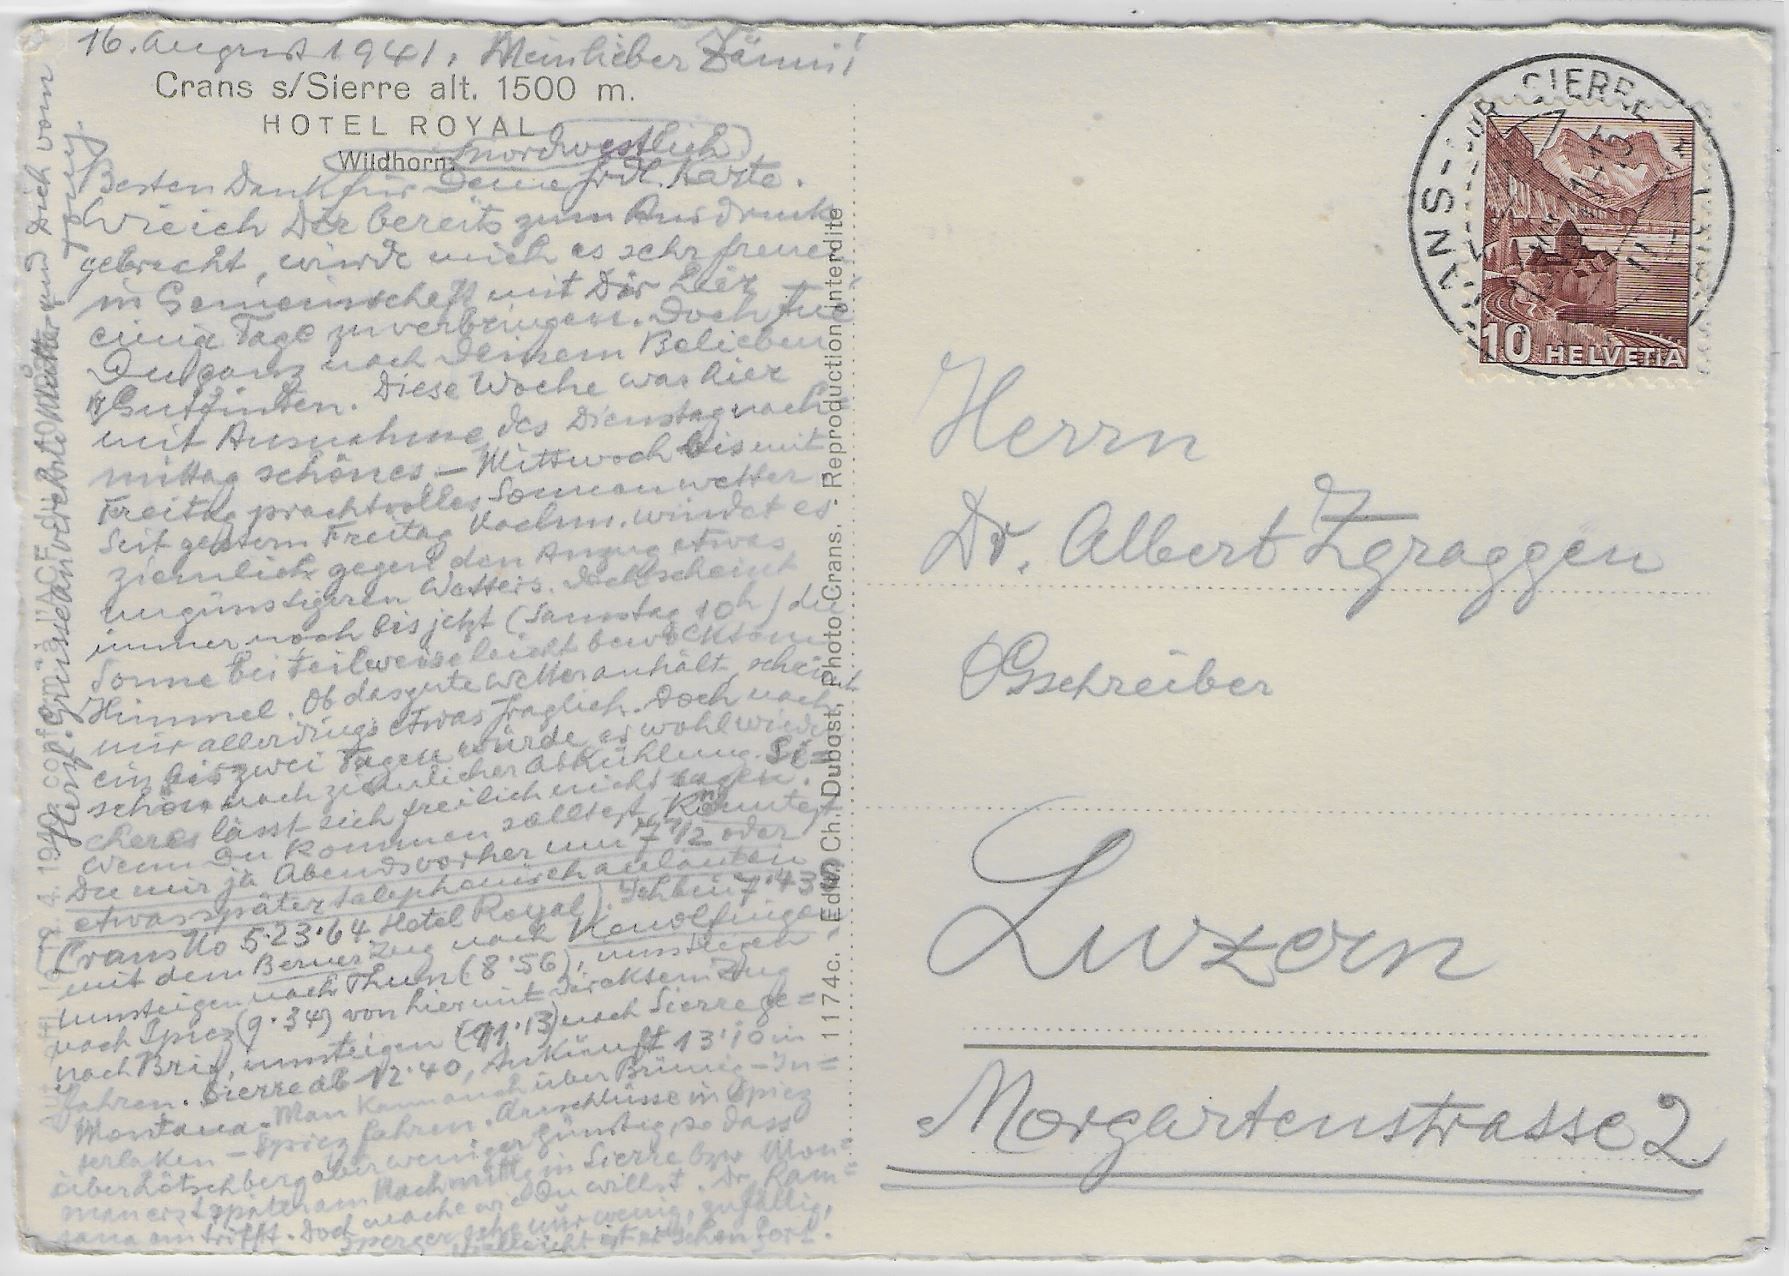 16. August 1941. Mein lieber
Crans s/Sierre alt. 1500 m.
HOTEL ROYAL
Wildhorn (nordwestlich)
Besten Dank für Deine frdl. Karte.
Wie ich Dir bereits zum Ausdruck
gebracht, würde mich es sehr freuen
in Gemeinschaft mit Dir hier
einige Tage zu verbringen. Doch tue
Du ganz nach Deinem Belieben
Gutfinden. Diese Woche war hier
mit Ausnahme des Dienstag nach=
mittag schönes – Mittwoch bis mit
Freitag prachtvolles Sonnenwetter
Seit gestern Freitag Nachm. windet es
ziemlich gegen den Anzug etwas
ungünstigeren Wetters. Doch scheint
immer noch bis jetzt (Samstag 10h) die
Sonne bei teilweise leicht bewölktem
Himmel. Ob das gute Wetter anhält, scheint
mir allerdings etwas fraglich. Doch nach
ein bis zwei Tagen würde es wohl wieder
schön nach ziemlicher Abkühlung. Si=
cheres lässt sich freilich nicht sagen.
Wenn Du kommen solltest, könntest
Du mir ja Abends vorher um 7 1/2 oder
etwas später telephonisch anläuten
(Crans No 5.23.64 Hotel Royal). Ich bin 7.43
mit dem Berner Zug nach Konolfingen
umsteigen nach Thun (8.56), umsteigen
nach Spiez (9.34) von hier mit direktem Zug
nach Brig, umsteigen (11.13) nach Sierre ge=
fahren. Sierre ab 12.40, Ankunft 13.10 in
Montana. Man kann auch über Brünig – In=
terlaken – Spiez fahren. Anschlüsse in Spiez
über Lötschberg aber weniger günstig, so dass
man erst später am Nachmittg in Sierre bzw Mon=
tana eintrifft. Doch mache wie Du willst. Dr. Ram=
sperger sehe nur wenig, zufällig,
vielleicht ist er schon fort.
Herzl. Grüsse an Mutter und Dich vom
Tony.
11174c. - Edit. Ch. Dubost, Photo Crans. - Reproduction interdite
CRANS-SUR-SIERRE
10 HELVETIA
Herrn
Dr. Albert Zgraggen
OGschreiber
Luzern
Morgartenstrasse 2